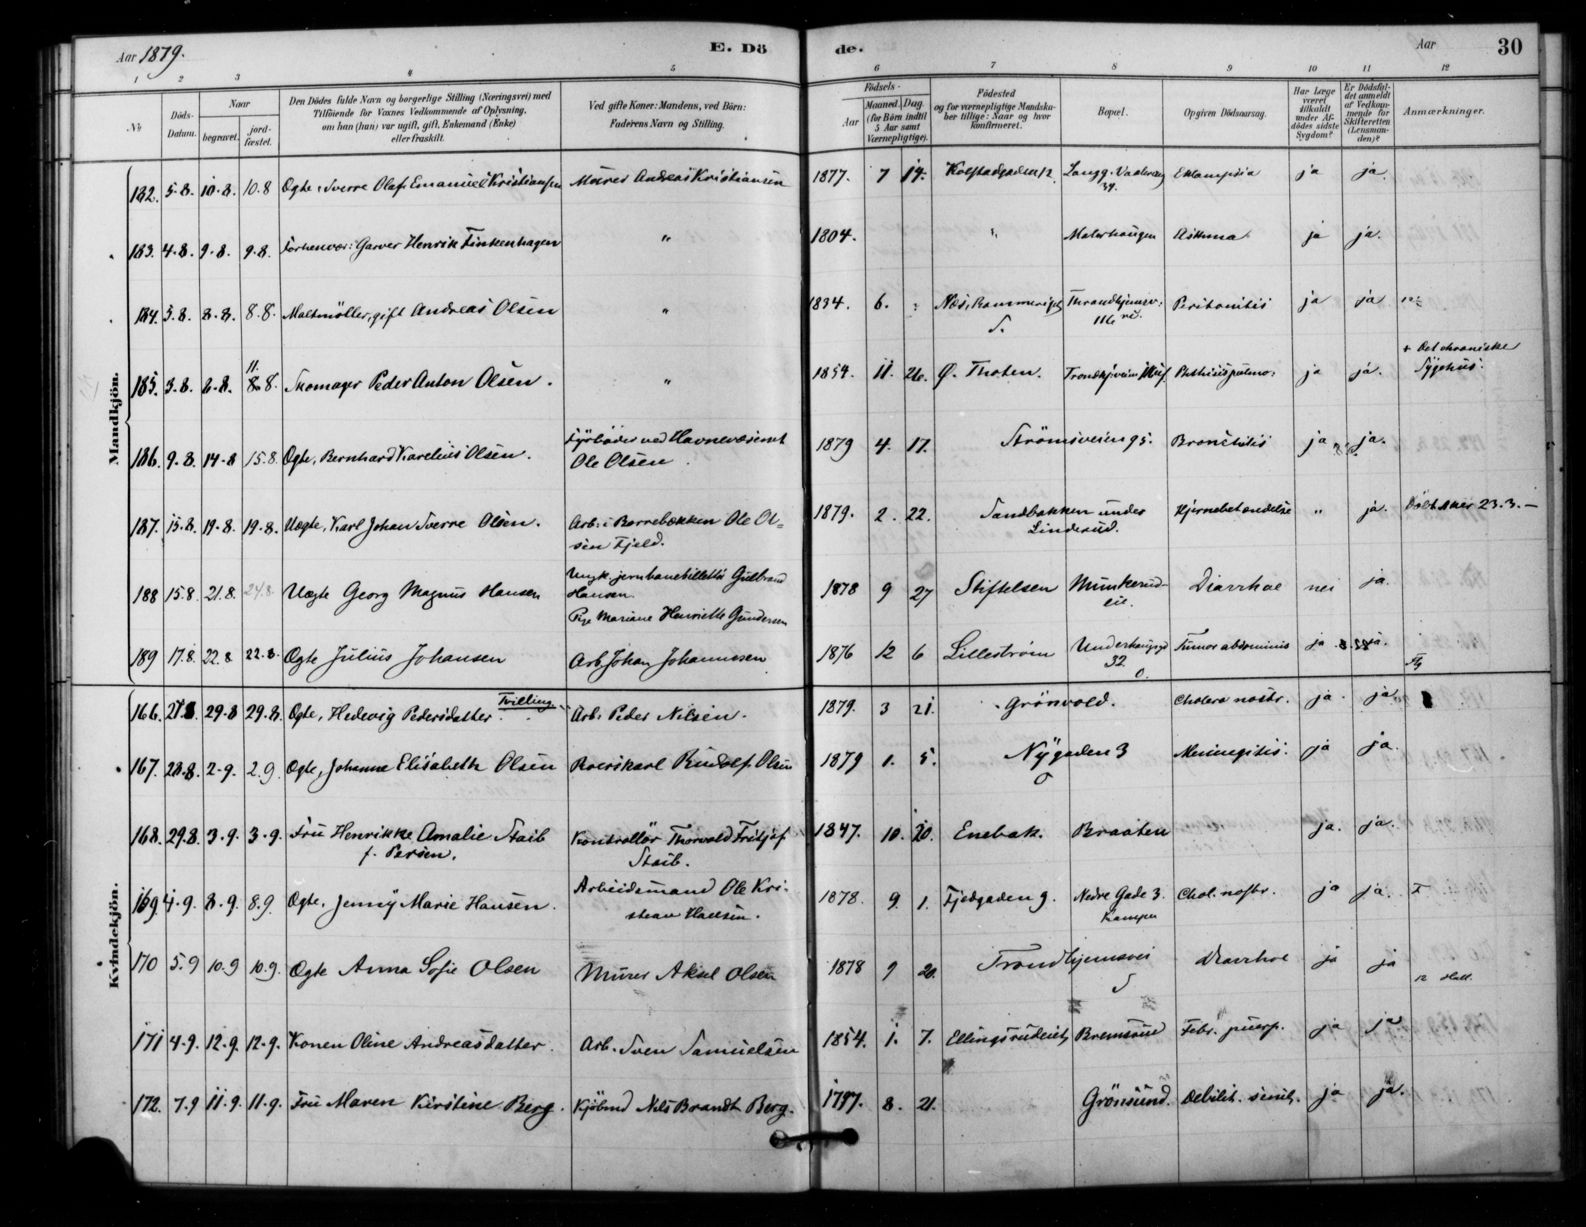 Aar 1879. E. Dö de. Aar 30
1 2 3 4 5 6 7 8 9 10 11 12
№ Döds-Datum. Naar begravet. jord-fæstet. Den Dödes fulde Navn og borgerlige Stilling (Næringsvei) med Tilföiende for Voxnes Vedkommende af Oplysning, om han (hun) var ugift, gift, Enkemand (Enke) eller fraskilt. Ved gifte Koner: Mandens, ved Börn: Faderens Navn og Stilling. Födsels- Aar Maaned. Dag. (for Börn indtil 5 Aar samt Værnepligtige). Födested og for værnepligtige Mandskaber tillige: Naar og hvor konfirmeret. Bopæl. Opgiven Dödsaarsag. Har Læge været tilkaldt under Afdödes sidste Sygdom? Er Dödsfaldet anmeldt af Vedkommende for Skifteretten (Lensmanden)? Anmærkninger.
Mandkjön.
182. 5.8. 10.8. 10.8 Ægte, Sverre Olaf Emanuel Kristiansen Murer Andreas Kristiansen 1877. 7 19. Kolstadgaden 12 Langg. Vaalereng 39. Eklampsia ja ja.
183. 4.8. 9.8. 9.8. Forhenvær: Garver Henrik Finkenhagen " 1804. " Malerhaugen Asthma ja ja.
184. 5.8. 8.8. 8.8. Maltmöller, gift Andreas Olsen " 1834. 6. Næs, Rommeriget Throndhjemsv. 116 Peritonitis ja ja
185. 3.8. 6.8. 11. 8.8. Skomager Peder Anton Olsen. " 1854. 11. 26. Ø. Thoten. Phthisis pulmo: ja ja. + Det chroniske Sygehus.
186. 9.8. 14.8 15.8. Ægte, Bernhard Karelius Olsen. Fyrböder ved Havnevæsenet Ole Olsen. 1879 4. 17. Strömsveien 95. Bronchitis ja ja.
187. 15.8. 19.8. 19.8. Uægte, Karl Johan Sverre Olsen. Arb. i Borrebækken Ole Olsen Fjeld. 1879. 2. 22. Sandbakken under Linderud. Hjernebetændelse " ja. 23.3.—
188 15.8. 21.8. 24.8. Uægte Georg Magnus Hansen Ungk. jernbanebillettör Gulbrand Hansen Pge Mariane Henriette Gundersen 1878 9 27 Stiftelsen Munkerudeie. Diarrhoe nei ja.
189 17.8. 22.8 22.8. Ægte Julius Johansen Arb. Johan Johannesen 1876 12 6 Lilleström 32 Tumor abdominis ja ja.
Kvindekjön.
166. 27.8 29.8 29.8. Ægte, Hedevig Pedersdatter. Tvilling. Arb. Peder Nilsen. 1879. 3 21. Grönvold. Cholera nostr. ja. ja
167. 28.8. 2.9. 2.9. Ægte, Johanne Elisabeth Olsen Rudolf Olsen 1879 1. 5. Nygaden 3 Meningitis. ja ja.
168. 29.8. 3.9. 3.9. Fru Henrikke Amalie Staib f. Persen. Kontrollör Thorvald Fritjof Staib. 1847. 10. 20. Enebak. Braaten ja. ja.
169 4.9. 8.9. 8.9. Ægte, Jenny Marie Hansen. Arbeidsmand Ole Kristian Hansen. 1878. 9. 1. Fjeldgaden 9. Nedre Gade 3. Kampen Chol. nostr. ja ja.
170 5.9 10.9 10.9. Ægte Anna Sofie Olsen Murer Aksel Olsen 1878 9 20. Trondhjemsvei Diarrhoe ja ja
171 4.9. 12.9. 12.9. Konen Oline Andreasdatter. Arb. Sven Samuelsen 1854. 1. 7. Ellingsrudeiet Bremsrud Febr. puerp. ja ja
172. 7.9 11.9. 11.9. Fru Maren Kirstine Berg. Kjöbmd Nils Brandt Berg. 1797. 8. 21. Grönsund. Debilit. senil. ja ja.